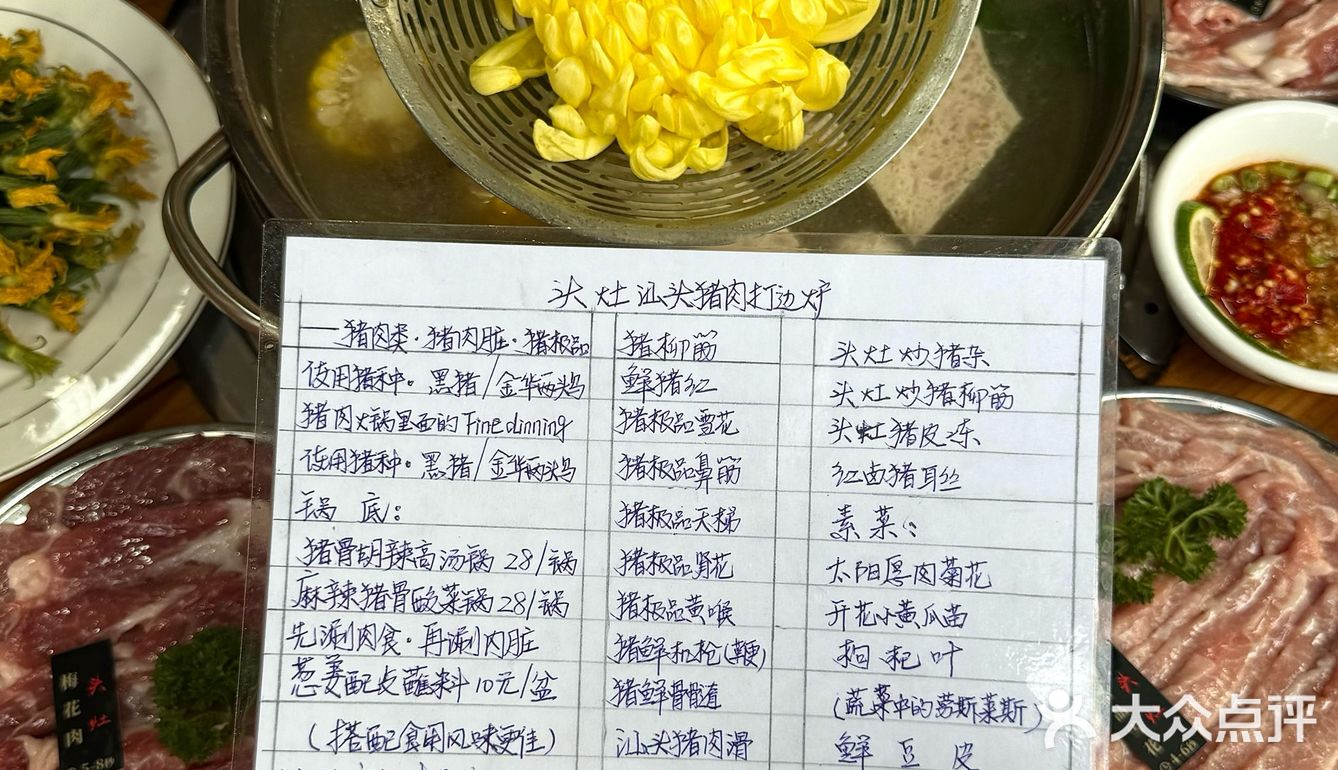 头灶汕头猪肉打边炉
一猪肉类·猪肉脏·猪极品
使用猪种。黑猪/金华两头乌
猪肉火锅里面的Finedinning
使用猪种。黑猪/金华两头乌
锅底:
猪骨胡辣高汤锅 28/锅
麻辣猪骨酸菜锅 28/锅
先涮肉食·再涮内脏
葱姜配炙蘸料10元/盆
(搭配食用风味更佳)
猪柳筋
鲜猪红
猪极品雪花
猪极品鼻筋
猪极品天梯
猪极品肾花
猪极品黄喉
猪鲜机枪(鞭)
猪鲜骨髓
汕头猪肉滑
头灶炒猪杂
头灶炒猪柳筋
头灶猪皮冻
红卤猪耳丝
素菜:
太阳厚肉菊花
开花小黄瓜苗
枸杞叶
(蔬菜中的劳斯莱斯)
鲜豆皮
头灶
梅花肉
5-8秒
大众点评